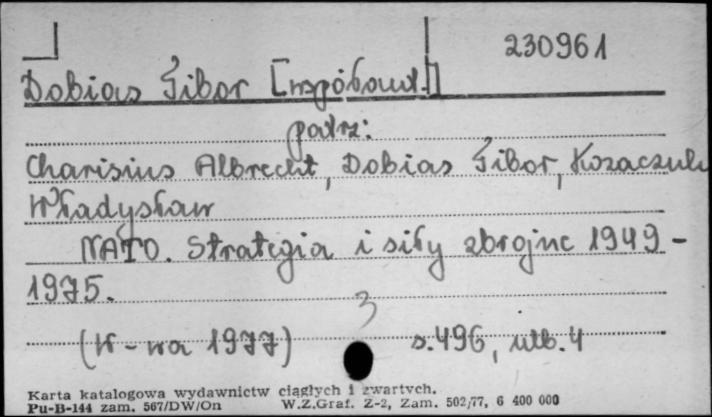 230961
Dobias Tibor [współaut.]
patrz:
Charisius Albrecht, Dobias Tibor, Kozaczuk
Władysław
NATO. Strategia i siły zbrojne 1949-
1975.
3
(W-wa 1977) s.496, nlb.4
Karta katalogowa wydawnictw ciągłych i zwartych.
Pu-B-144 zam. 567/DW/On W.Z.Graf. Z-2, Zam. 502/77, 6 400 000